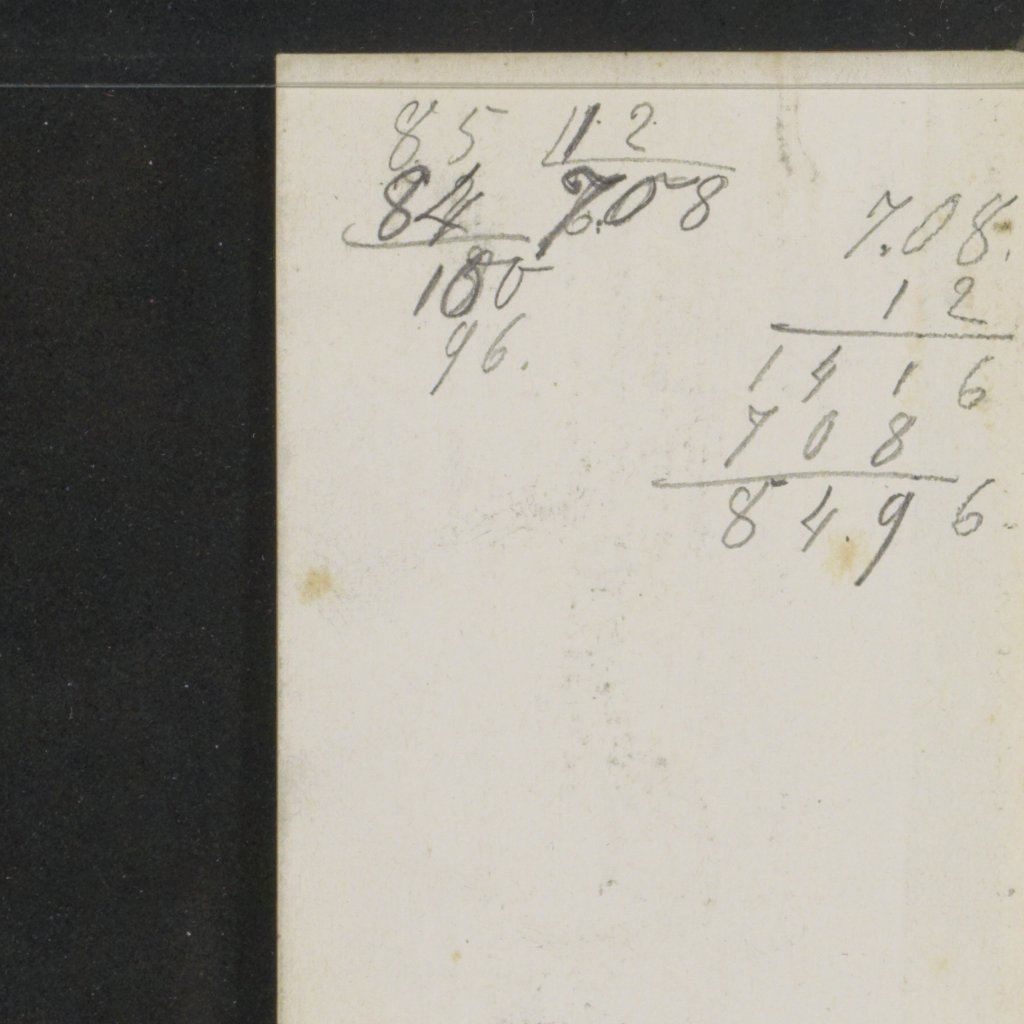 85 12
84 7.08
100
96.
7.08.
12
1416
708
84.96.